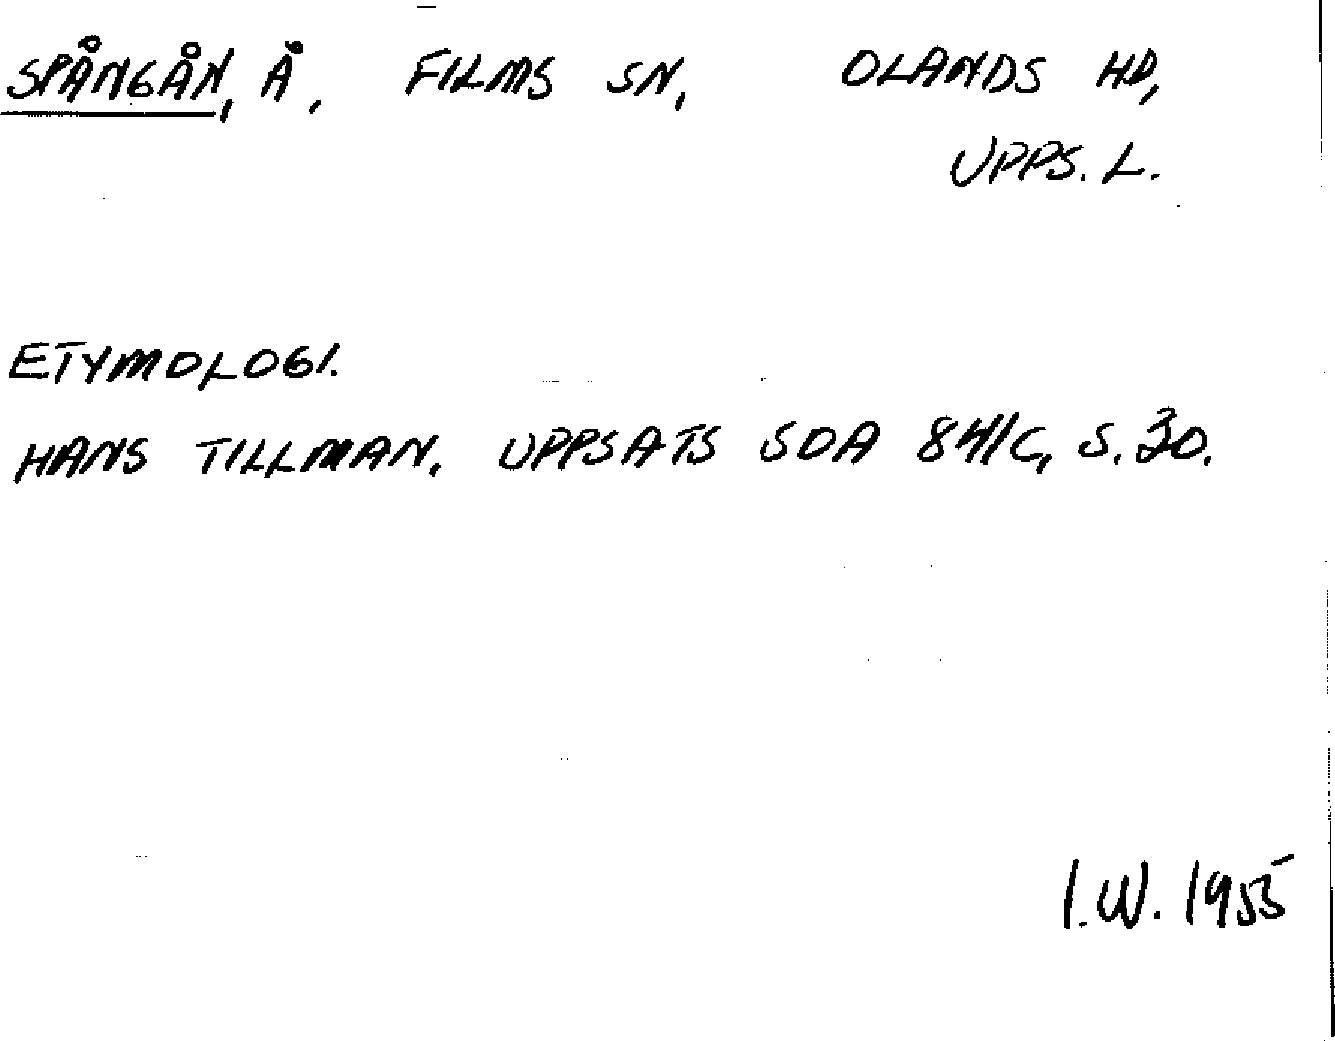 SPÅNGÅN, Å, FILMS SN, OLANDS HD,
UPPS. L.
ETYMOLOGI.
HANS TILLMAN. UPPSATS SOA 841C, S. 30.
I.W. 1955